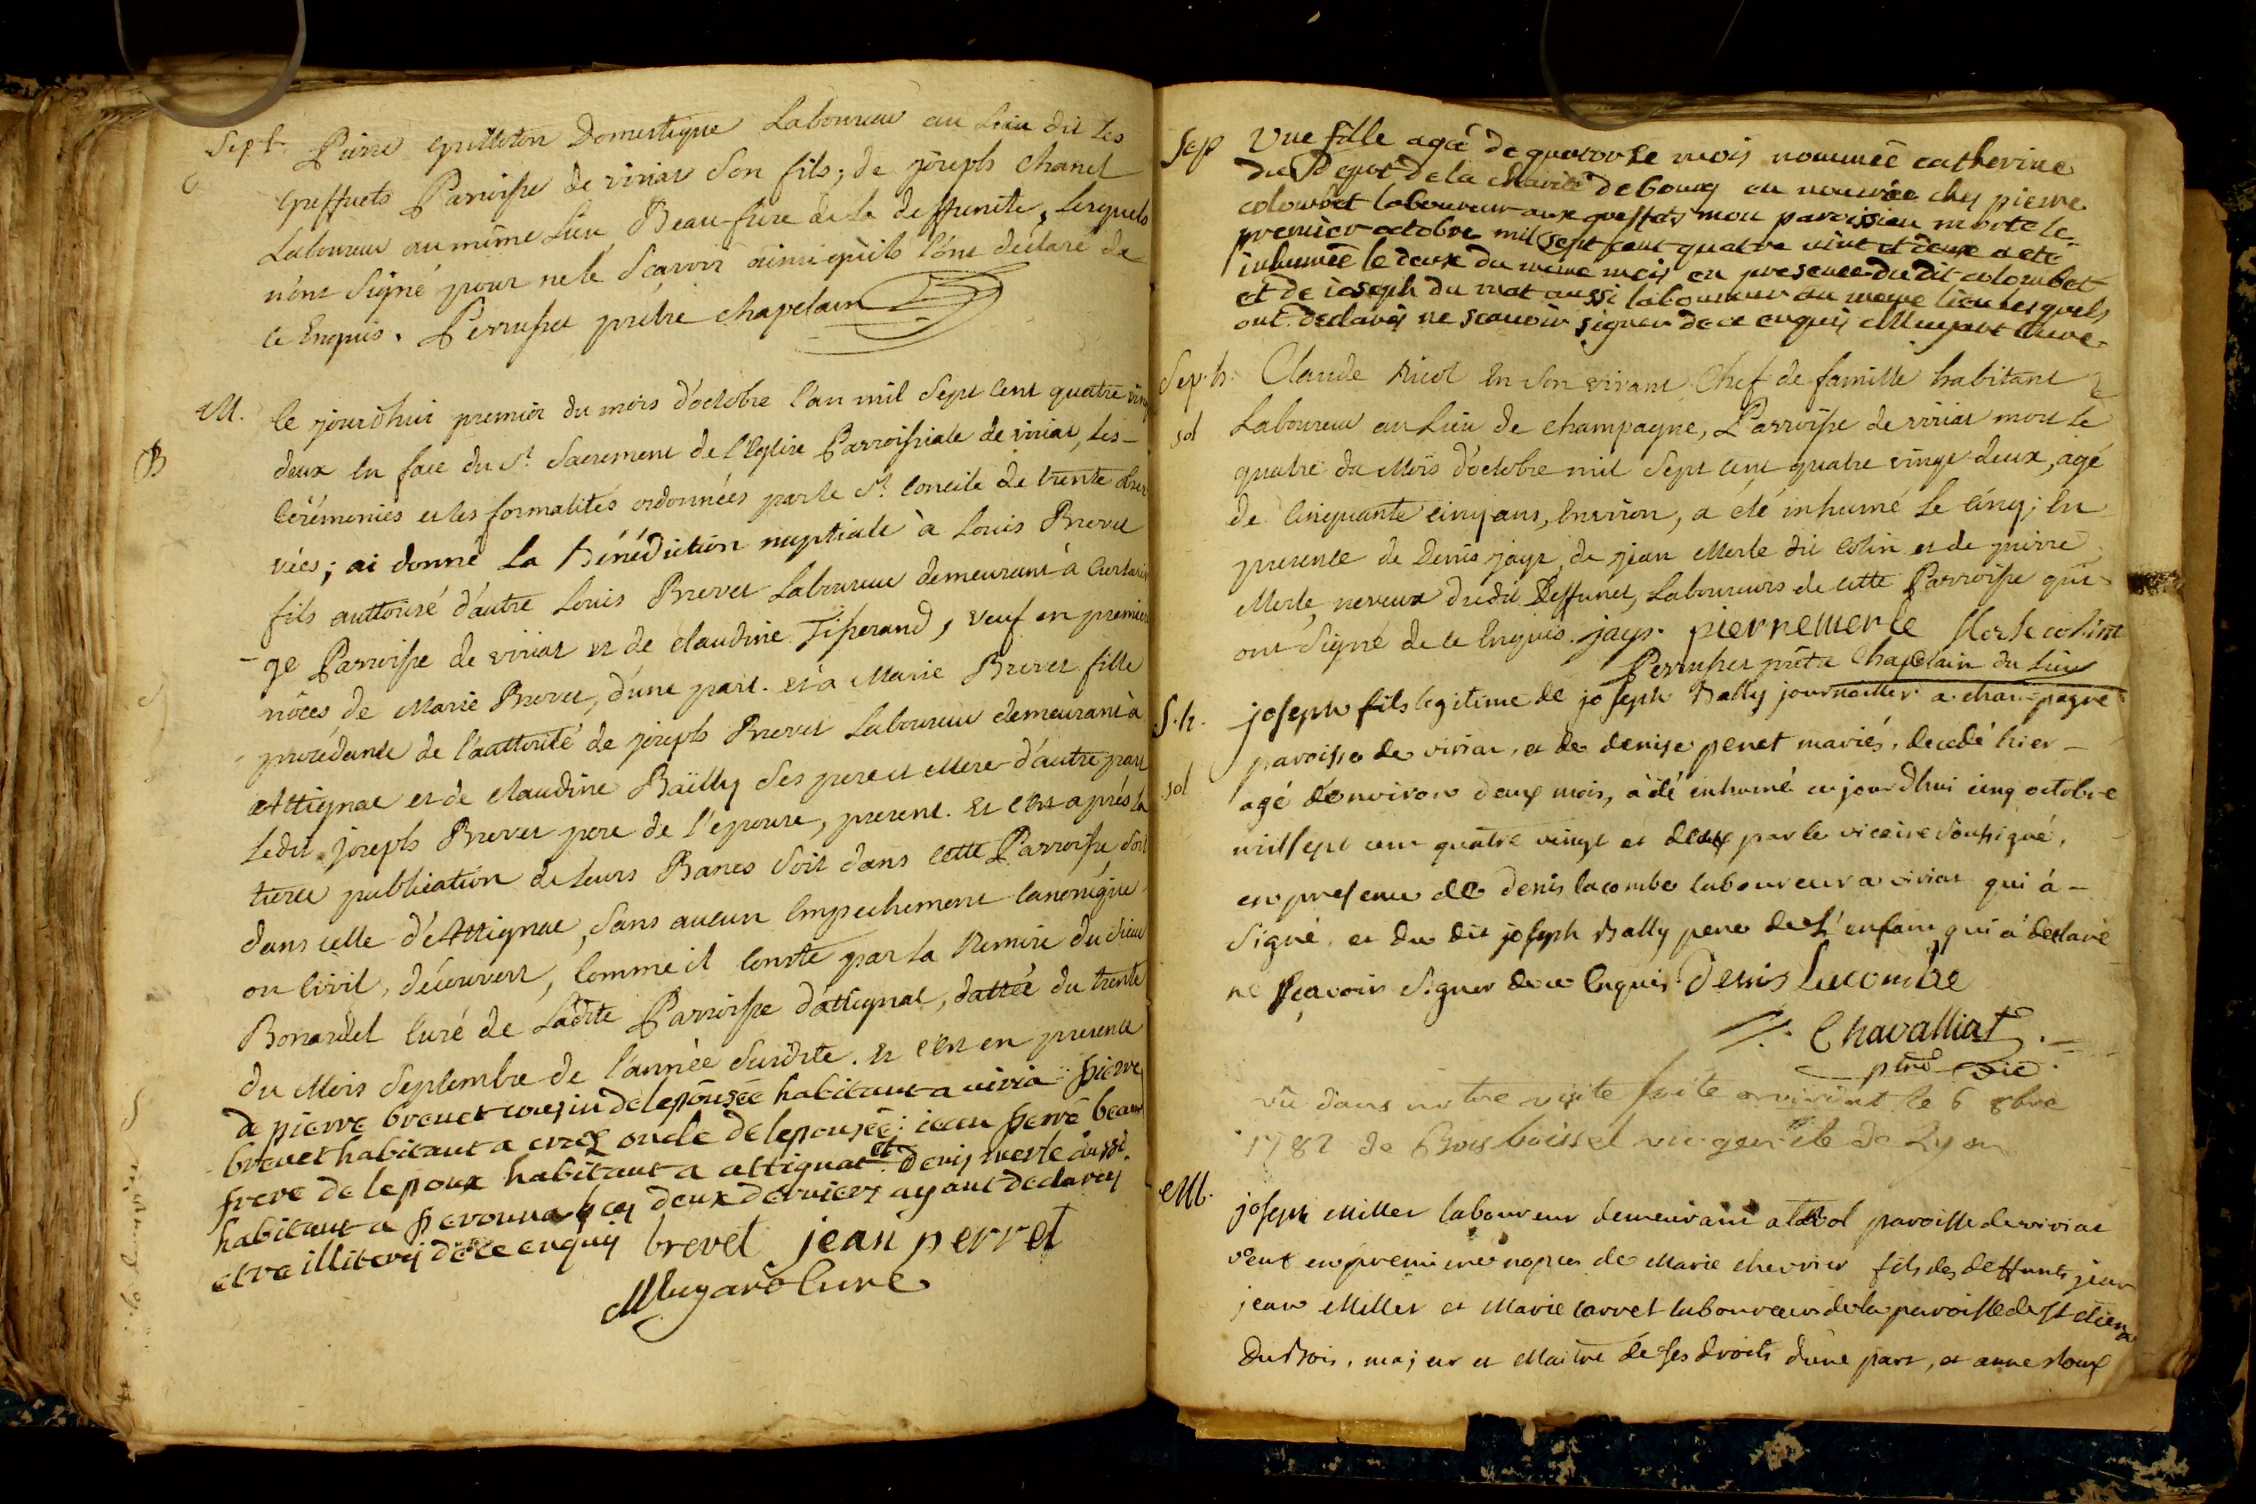 Sept. Pierre Guilloton Domestique Laboureur au Lieu dit Les
Greffuets Parroisse de viriat Son fils; de joseph Chanel
Laboureur au même Lieu Beau-frere de la deffunte, Lesquels
n'ont Signé pour ne le Sçavoir ainsi qu'ils l'ont déclaré de
ce Enquis. Perruset prêtre chapelain
M. Ce jourd'hui premier du mois d'octobre l'an mil Sept Cent quatre vingt
B deux en face du St. Sacrement de l'Eglise Parroissiale de viriat, les
Cérémonies et les formalités ordonnées par le St. Concile de trente obser
vées; ai donné la Bénédiction nuptiale à Louis Brevet
fils authorisé d'autre Louis Brevet Laboureur demeurant à
ge Parroisse de viriat et de Claudine Tisserand, veuf en premier
nôces de Marie Brevet, d'une part. et à Marie Brevet fille
procédante de l'authorité de joseph Brevet Laboureur demeurant à
Attignat et de Claudine Bailly Ses pere et Mere d'autre part
Ledit joseph Brevet pere de l'epouse, present. Et c'est après la
tierce publication de leurs Bancs Soit dans cette Parroisse Soit
dans celle d'Attignat, Sans aucun Empechement Canonique
ou Civil, découvert, Comme il Conste par la Remise du Sieur
Bonardel Curé de Ladite Parroisse d'attignat, dattée du trente
du Mois Septembre de l'année Susdite. Et c'est en presence
de pierre brevet cousin de lepousée habitant a viria pierre
brevet habitant a craz oncle de lepousée; jean perré beau
frere de lepoux habitant a attignat et denis merle aussi
habitant a peronna ces deux derniers ayant declarés
etre illiterés de ce enquis brevet jean perret
Mugard Curé
Sep Une fille agée de quatorze mois nommée catherine
du Depot de la charité de bourg en nourrice chez pierre
colombet laboureur aux greffets mon paroissien morte le
premier octobre mil sept cent quatre vint et deux a eté
inhumée le deux du meme mois en presence du dit colombet
et de joseph du mat aussi laboureur au meme lieu lesquels
ont declarés ne scauoir signer de ce enquis Mugard Curé
Sep.h. Claude Ricol En Son vivant Chef de famille habitant
sol Laboureur au Lieu de Champagne, Parroisse de viriat mort le
quatre du Mois d'octobre mil Sept Cent quatre vingt deux, agé
de Cinquante cinq ans, Environ, a été inhumé le Cinq; En
presence de Denis jayr, de jean Merle dit Colin et de pierre
Merle neveux dudit Deffunct, Laboureurs de cette Parroisse qui
ont Signé de ce Enquis. jayr. pierre merle Merle colin
Perruset prêtre Chapelain du Lieu
S.h. joseph fils legitime de joseph Bally journaillier a champagne
paroisse de viriat, et de denise penet mariés, decedé hier
sol agé d'environ deux mois, a été inhumé ce jourd'hui cinq octobre
mil sept cent quatre vingt et deux par le vicaire Soussigné,
en presence de denis lacombe laboureur a viriat qui à
Signé, et du dit joseph Bally pere de l'enfant qui à déclaré
ne sçavoir Signer de ce Enquis. Denis Lacombe
Chavalliat
ptre vic
vû dans notre visite faite a viriat le 6 8bre
1782 de Bois boissel vic. gen. de Lyon
M. joseph Millet laboureur demeurant a paroisse de viriat
veuf en premiere nopces de Marie chevrier fils des deffunts jean
jean Millet et Marie Carret laboureurs de la paroisse de St etienne
du Bois, majeur et Maitre de ses droits d'une part, et anne Roux